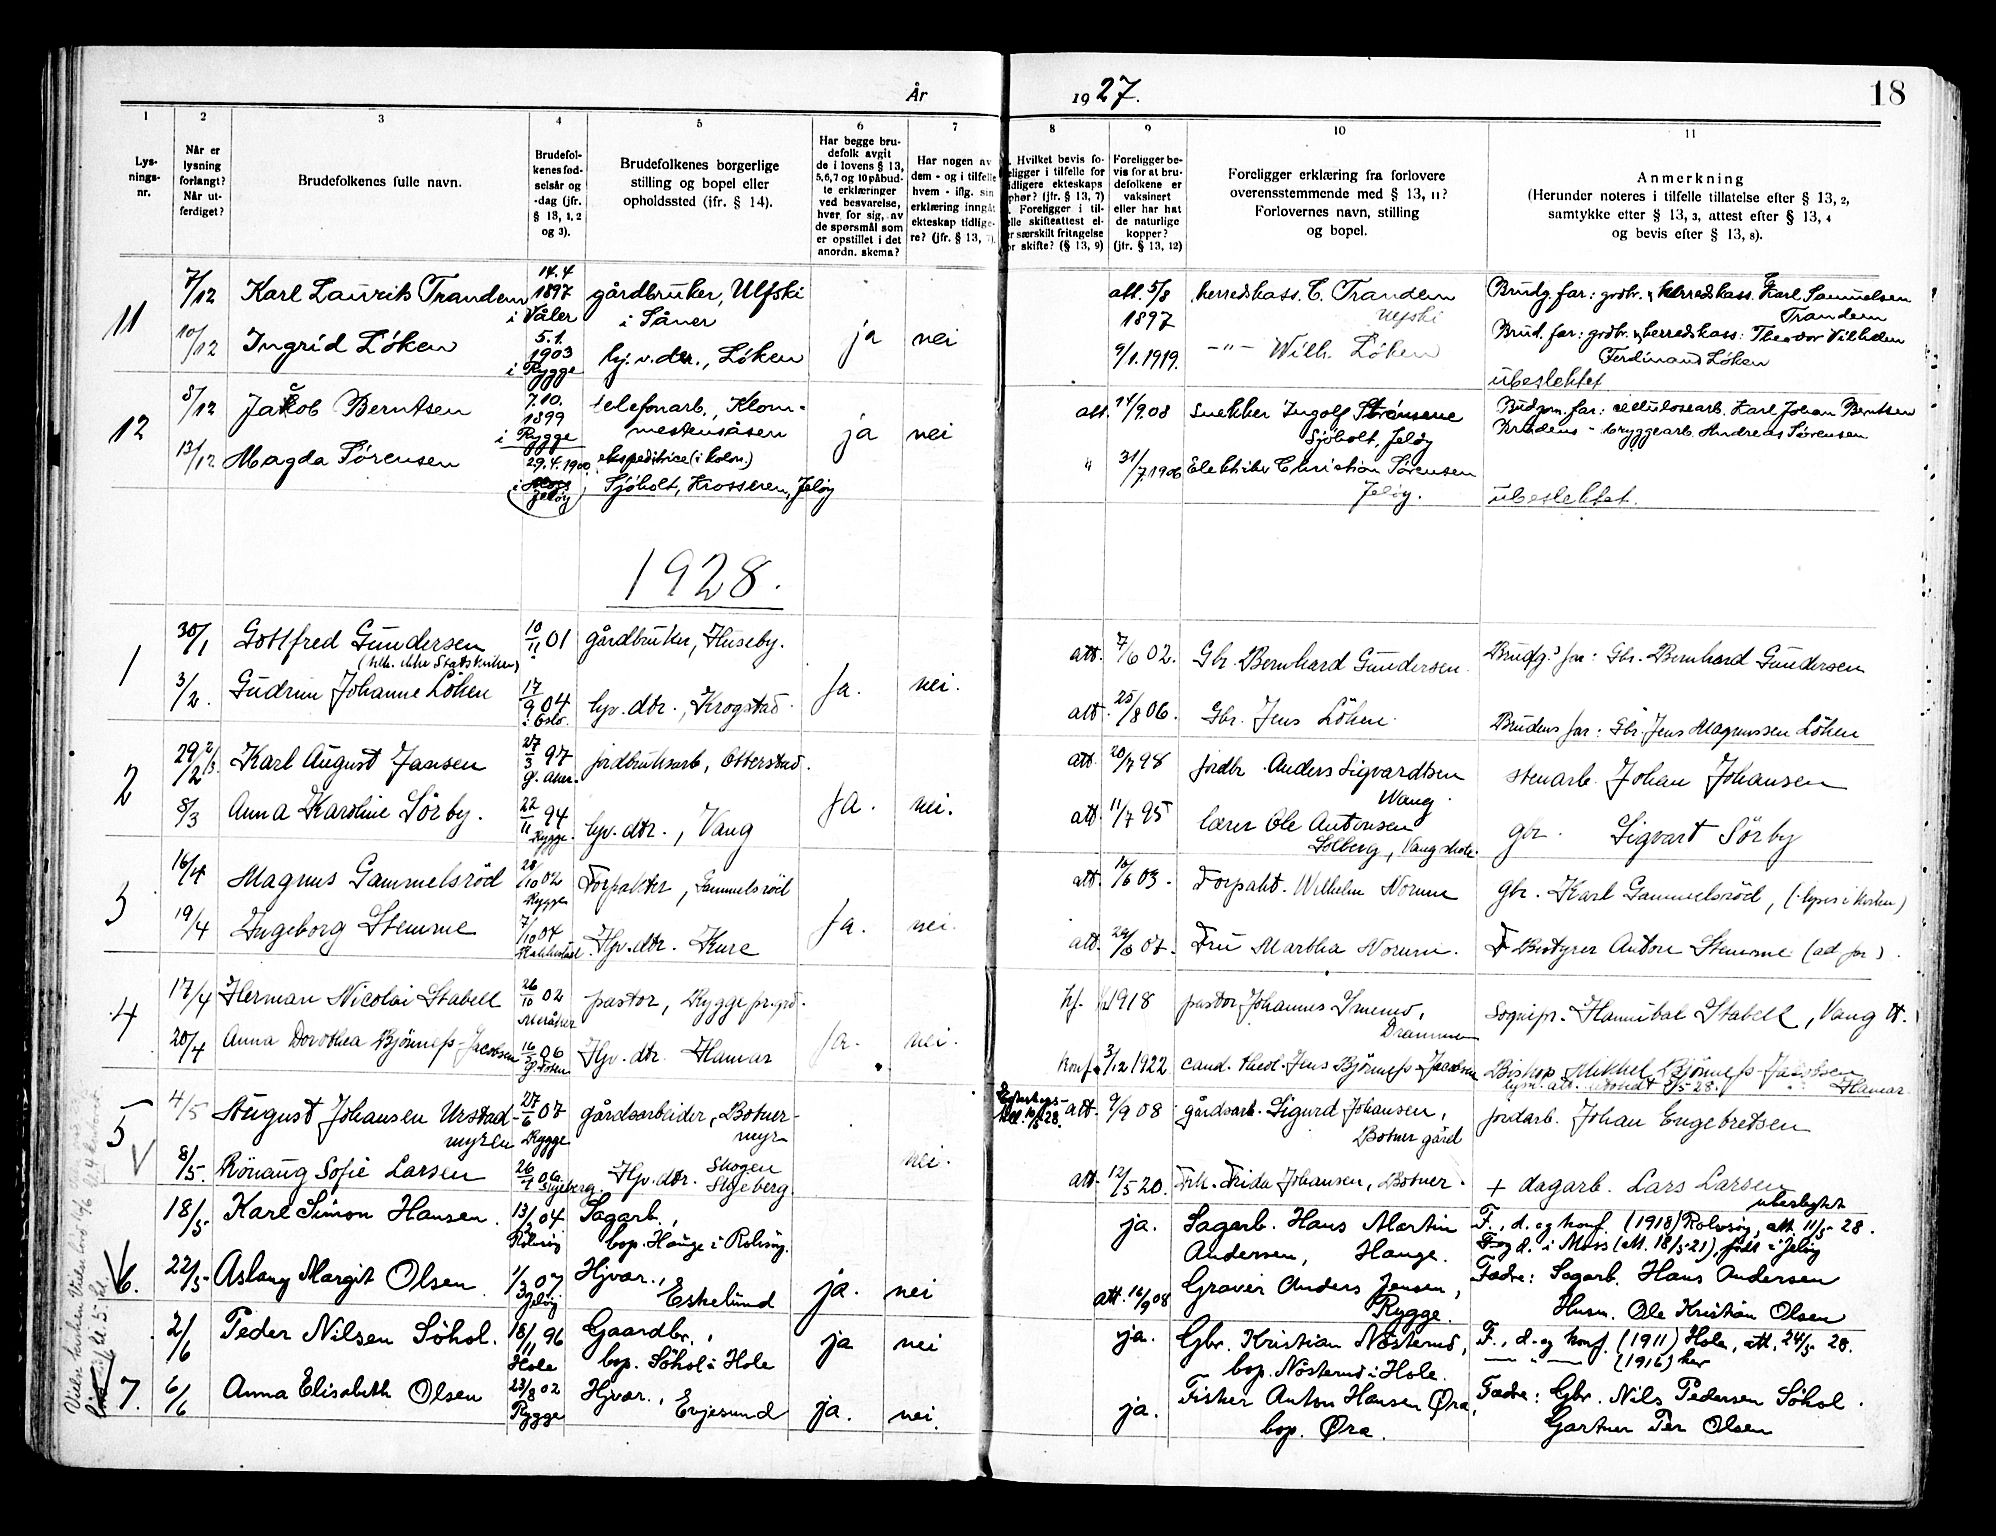 År 1927.
18
1
2
3
4
5
6
7
8
9
10
11
Lys-
nings-
nr.
Når er
lysning
forlangt?
Når ut-
ferdiget?
Brudefolkenes fulle navn.
Brudefol-
kenes fød-
selsår og
-dag (jfr.
§ 13, 1, 2
og 3).
Brudefolkenes borgerlige
stilling og bopel eller
opholdssted (ifr. § 14).
Har begge bru-
defolk avgit
de i lovens § 13,
5,6,7 og 10 påbud-
te erklæringer
ved besvarelse,
hver for sig, av
de spørsmål som
er opstillet i det
anordn. skema?
Har nogen av
dem - og i tilfelle
hvem - iflg. sin
erklæring inngåt
ekteskap tidlige-
re? (jfr. § 13, 7).
Hvilket bevis fo-
religger i tilfelle for
tidligere ekteskaps
ophør? (jfr. § 13, 7)
Foreligger i til-
felle skifteattest el-
er særskilt fritagelse
or skifte? (§ 13, 9)
Foreligger be-
vis for at bru-
defolkene er
vaksinert
eller har hat
de naturlige
kopper?
(jfr. § 13, 12)
Foreligger erklæring fra forlovere
overensstemmende med § 13, 11?
Forlovernes navn, stilling
og bopel.
Anmerkning
(Herunder noteres i tilfelle tillatelse efter § 13, 2,
samtykke efter § 13, 3, attest efter § 13, 4
og bevis efter § 13, 8).
11
7/12 Karl Laurits Trandem 14.4 1897 i Våler gårdbruker, Ulfski i Såner
att. 5/8 1897 herredskass. C. Trandem Ulfski
Brudg. far: grdbr. & herredskass. Karl Samuelsen Trandem
10/12 Ingrid Løken 5.1. 1903 i Rygge hj.v.dtr., Løken ja nei
9/1.1919. -"- Wilh. Løken
Brud. far: grdbr. & herredskass: Theodor Vilhelm
Ferdinand Løken
ubeslektet
12
8/12 Jakob Berntsen 7.10. 1899 i Rygge telefonarb., Klom-
mestensåsen ja nei
att. 14/9.08 snekker Ingolf Sørensene
Sjøholt, Jeløy
Budgm. far: cellulosearb. Karl Johan Berntsen
13/12 Magda Sørensen 29.4.1900 i Jeløy ekspeditrice (i kolon.)
Sjøholt, Krosseren, Jeløy
" 31/7.1906 Elektiker Christian Sørensen
Jeløy.
Brudens - bryggearb. Andreas Sørensen
ubeslektet.
1928.
1
30/1 Gottfred Gundersen 10/11 01 gårdbruker, Huseby.
att. 7/6 02. Gbr. Bernhard Gundersen.
Brudg.s far: Gbr. Bernhard Gundersen
3/2. Gudrun Johanne Løken 17/9 04 i Oslo hjv. dtr., Krogstad. Ja. nei.
att. 25/8 06. Gbr. Jens Løken.
Brudens far: Gbr. Jens Magnussen Løken
2
29/2 2/3 Karl August Jansen 27/3 97 jordbruksarb, Otterstad.
att. 20/7 98 jordbr. Anders Sigvardtsen
Wang.
stenarb. Johan Johansen
8/3 Anna Karoline Sørby. 22/11 94 Rygge. hjv. dtr., Vang Ja. nei.
att. 11/7 95 lærer Ole Antonsen
Solberg, Vang skole.
gbr. Sigvart Sørby
3
16/4 Magnus Gammelsrød 28/10 02 Rygge Forpakter, Gammelsrød
att. 10/6 03. Forpakt. Wilhelm Norum
gbr. Karl Gammelsrød, (lyses i kirken)
19/4 Ingeborg Stemme 7/10 04 Hjv. dtr. Kure Ja. nei.
att. 07. Fru Martha Norum.
Bestyrer Anton Stemme (ad. far).
4
17/4 Herman Nicolai Stabell 26/10 02 Meråker pastor, Rygge pr.grd.
1918 pastor Johannes Smemo,
Drammen
Sognepr. Hannibal Stabell, Vang
20/4 Anna Dorothea Bjønness-Jacobsen 16/3 06 Hjv. dtr. Hamar Ja. nei.
konf. 3/12 1922 cand. theol. Jens Bjønness-Jacobsen
Bishop Mikkel Bjønness-Jacobsen
Hamar
5
4/5 August Johansen Urstad-
myren 27/6 07 Rygge gårdsarbeider, Botner-
myr
att. 9/9 08 gårdsarb. Sigurd Johansen,
Botner gård
jordarb. Johan Engebretsen
8/5. Rönaug Sofie Larsen 26/1 Skjeberg. Hjv. dtr. Skogen
Skjeberg. nei.
att. 12/5 20. Frk. Frida Johansen, Botner.
+ dagarb. Lars Larsen
ubeslegtet
6.
18/5 Karl Simon Hansen. 13/12 04 Rolvsøy Sagarb.,
bop. Hauge i Rolvsøy.
ja. Sagarb. Hans Martin
Andersen, Hauge.
F., d. og konf. (1918) Rolvsøy, att. 11/5 28.
F. og d. i Moss (att. 18/5 21), født i Jeløy
22/5 Aslaug Margit Olsen. 1/3 07 Jeløy Hjvar.,
Eskelund ja. nei
att. 16/9 08 Graver Anders Jensen,
Rygge.
Fædre: Sagarb. Hans Andersen
Husm. Ole Kristian Olsen
7.
2/6 Peder Nilsen Søhol. 18/11 96 Hole Gaardbr.,
bop. Søhol i Hole ja nei
ja. Gbr. Kristian Nøsterud,
bop. Nøsterud i Hole.
F., d. og konf. (1911) Hole, att. 24/5 28.
— " — (1916) her
6/6 Anna Elisabeth Olsen 23/8 02 Rygge Hjvar., Evjesund ja. nei.
ja. Fisker Anton Hansen Øra,
bop. Øra.
Fædre: Gbr. Nils Pedersen Søhol.
Gartner Per Olsen